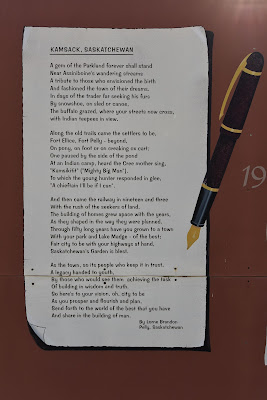 KAMSACK, SASKATCHEWAN
A gem of the Parkland forever shall stand
Near Assiniboine's wandering streams
A tribute to those who envisioned the birth
And fashioned the town of their dreams.
In days of the trader for seeking his furs
By snowshoe, on sled or canoe,
The buffalo grazed, where your streets now cross,
with Indian teepees in view.
Along the old trails came the settlers to be,
Fort Ellice, Fort Pelly - beyond,
On pony, on foot or on creaking ox cart;
One paused by the side of the pond
At an Indian camp, heard the Cree mother sing,
"Kamsikitt" ("Mighty Big Man"),
To which the young hunter responded in glee,
"A chieftain I'll be if I can".
And then came the railway in nineteen and three
With the rush of the seekers of land.
The building of homes grew apace with the years,
As they shaped in the way they were planned.
Through fifty long years have you grown to a town
With your park and Lake Madge - of the best;
Fair city to be with your highways at hand,
Saskatchewan's Garden is blest.
As the town, so its people who keep it in trust,
A legacy handed to youth,
By those who would see them achieving the task
Of building in wisdom and truth.
So here's to your vision, oh, city to be
As you prosper and flourish and plan,
Send forth to the world of the best that you have
And share in the building of man.
By Lorne
Pelly, Saskatchewan
19